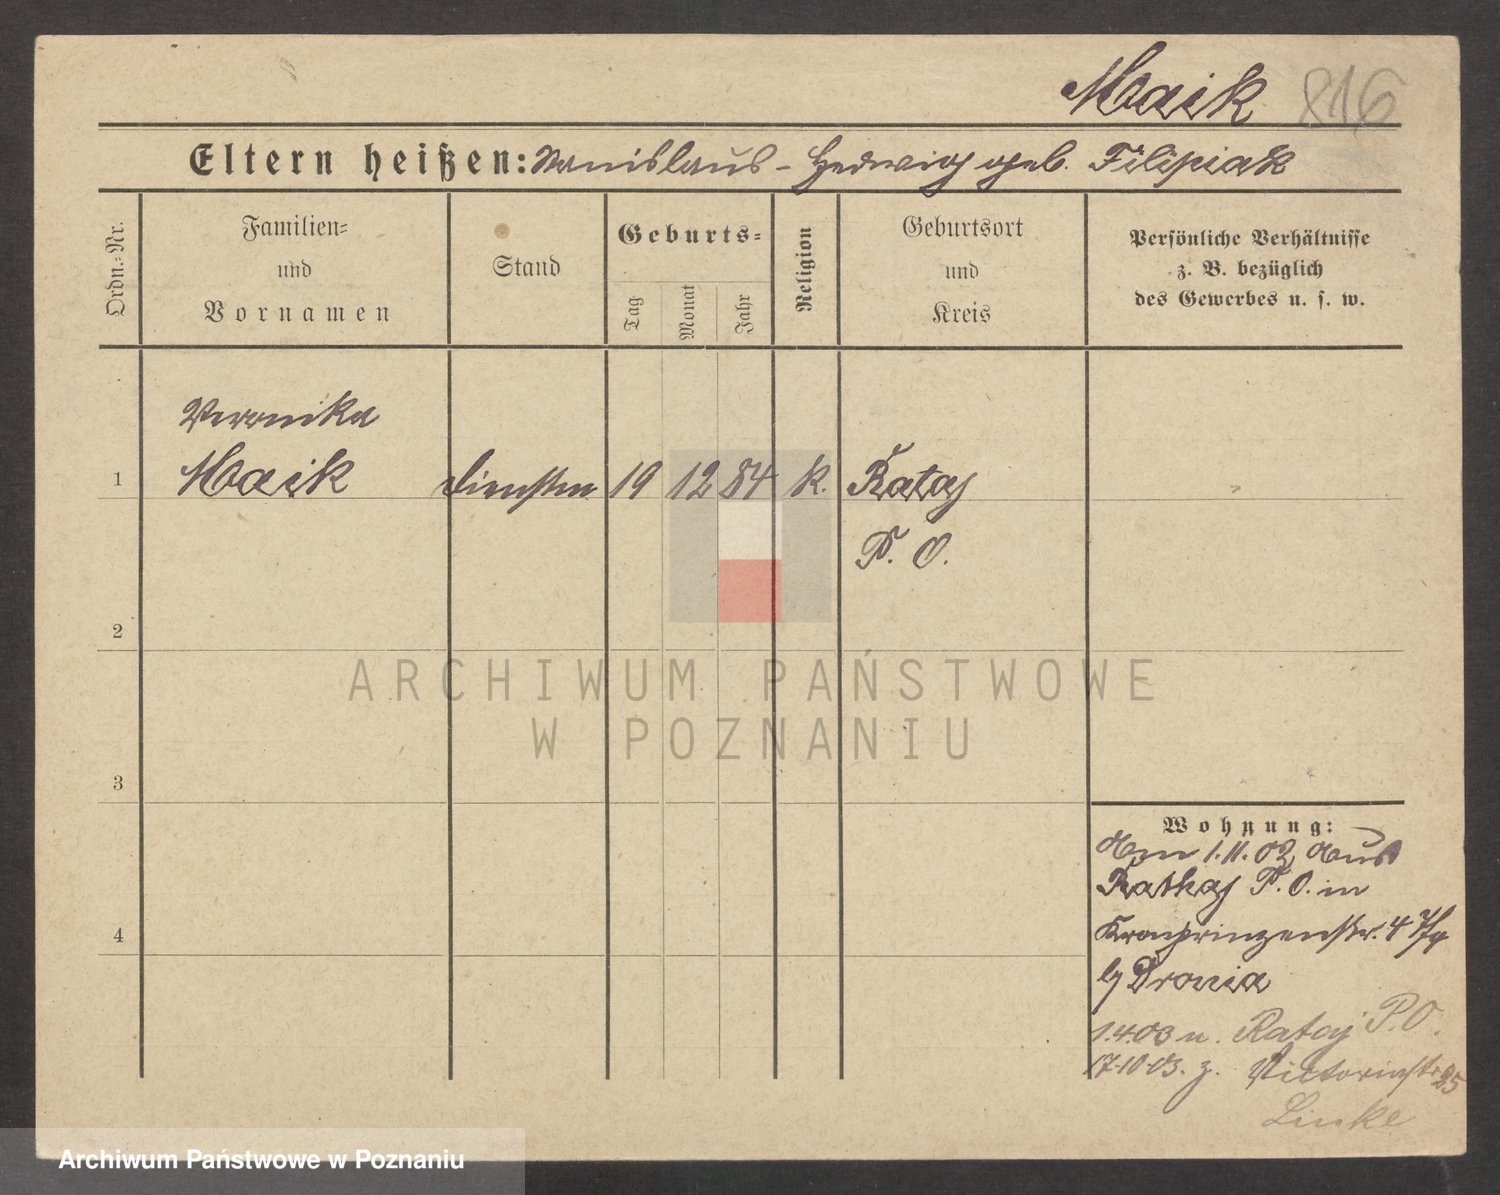 Maik 816
Eltern heißen: Stanislaus - Hedwig geb. Filipiak
Ordn.-Nr.
Familien-
und
Vornamen
Stand
Geburts-
Tag
Monat
Jahr
Religion
Geburtsort
und
Kreis
Persönliche Verhältnisse
z. B. bezüglich
des Gewerbes u. s. w.
Veronika
1 Maik Dienstm. 19 12 84 k. Rataj
P. O.
2
3
4
Wohnung:
Am 1.11.02 aus
Rathaj P. O. in
Kronprinzenstr. 4
b/ Dronia
1.4.03 n. Rataj P.O.
17.10.03. z. Victoriastr 25
Linke
ARCHIWUM PAŃSTWOWE
W POZNANIU
Archiwum Państwowe w Poznaniu